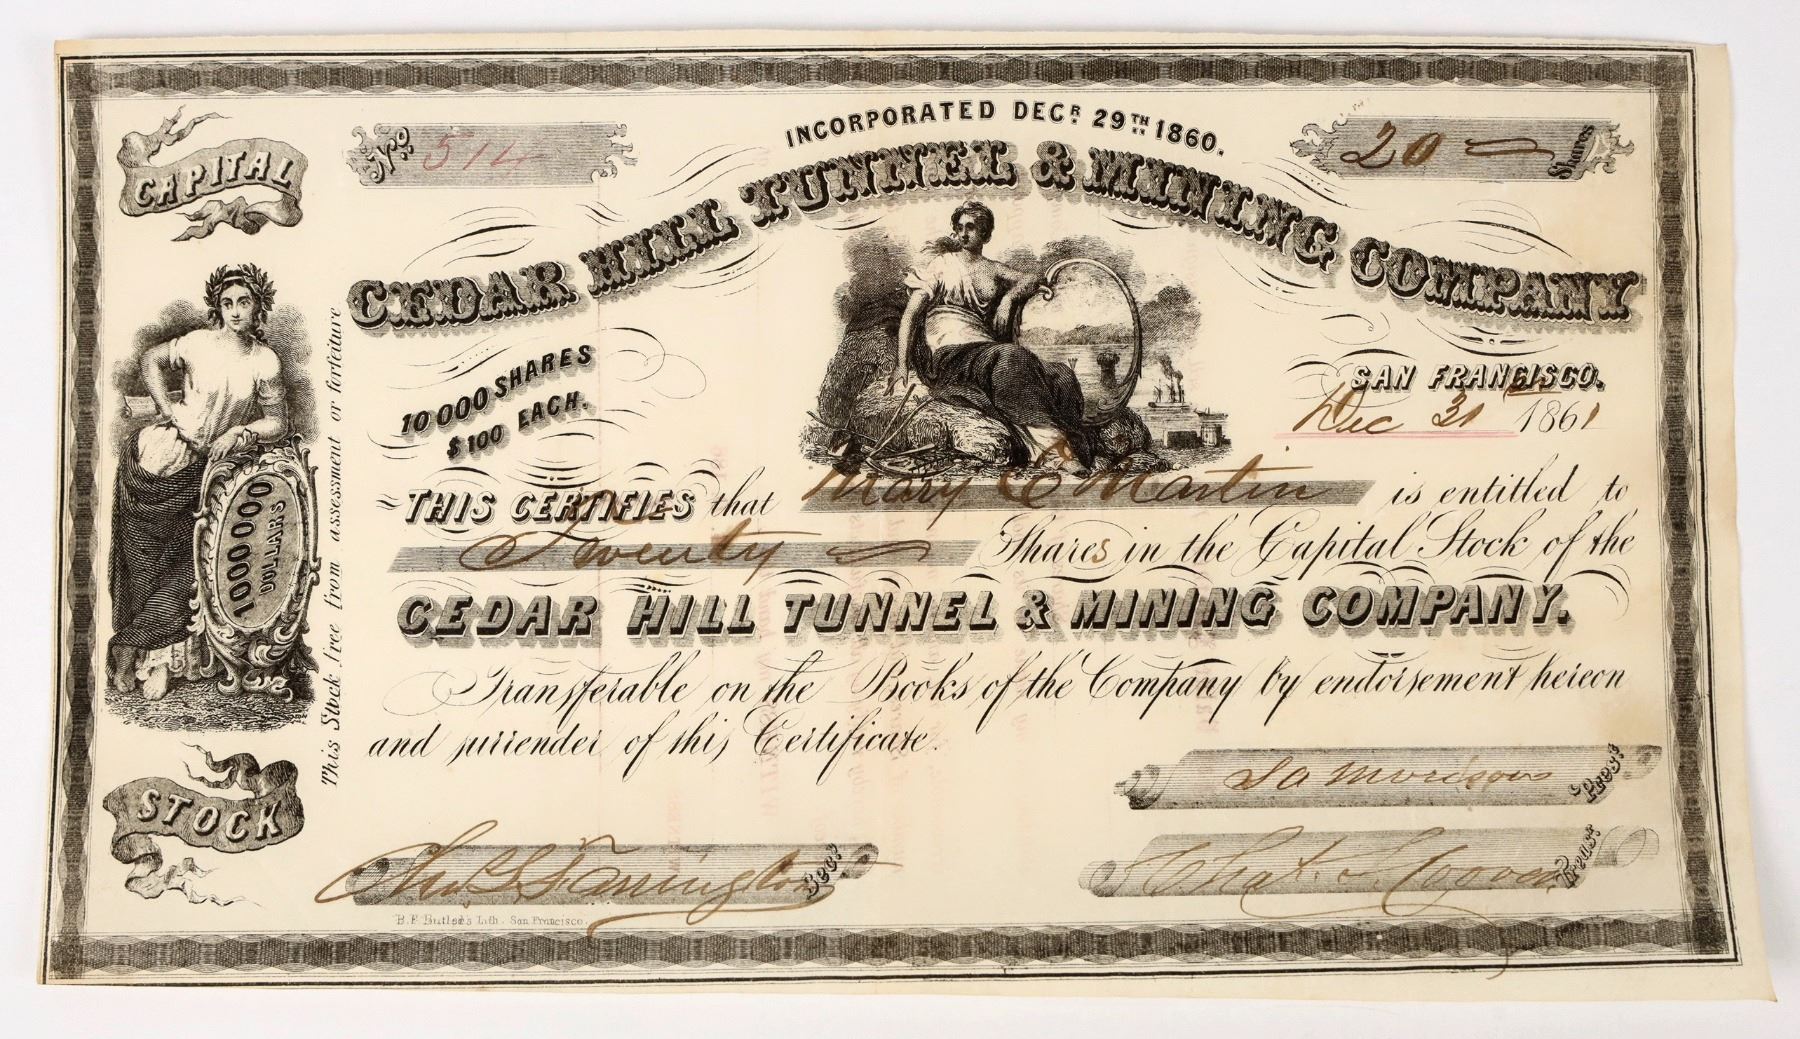 INCORPORATED DECR. 29TH 1860.
No 514
20 Shares
CAPITAL
CEDAR HILL TUNNEL & MINING COMPANY
10000 SHARES
$100 EACH.
SAN FRANCISCO.
Dec 31st 1861
THIS CERTIFIES that Mary E Martin is entitled to
Twenty Shares in the Capital Stock of the
CEDAR HILL TUNNEL & MINING COMPANY.
Transferable on the Books of the Company by endorsement hereon
and surrender of this Certificate.
1000000
DOLLARS
This Stock free from assessment or forfeiture
STOCK
Pres.
Farrington Sec.
Treas.
B.F. Butler's Lith. San Francisco.